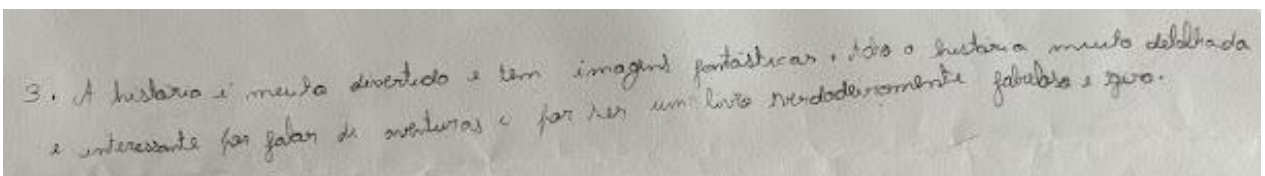 3. A historia é muito divertida e tem imagens fantásticas. Acho a história muito detalhada
e interessante por falar de aventuras e por ser um livro verdadeiramente fabuloso e giro.